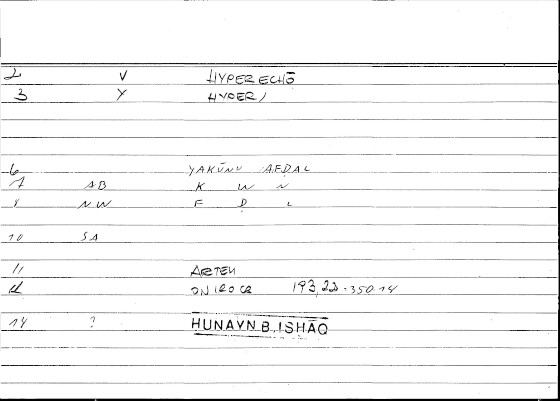 2 V HYPERECHŌ
3 Y HYPER/
6 YAKŪNU AFḌAL
7 AB K W N
8 NW F Ḍ L
10 SA
11 ARTEM
12 ONIROCR 193,22-350.14
14 ? HUNAYN B.ISHĀQ